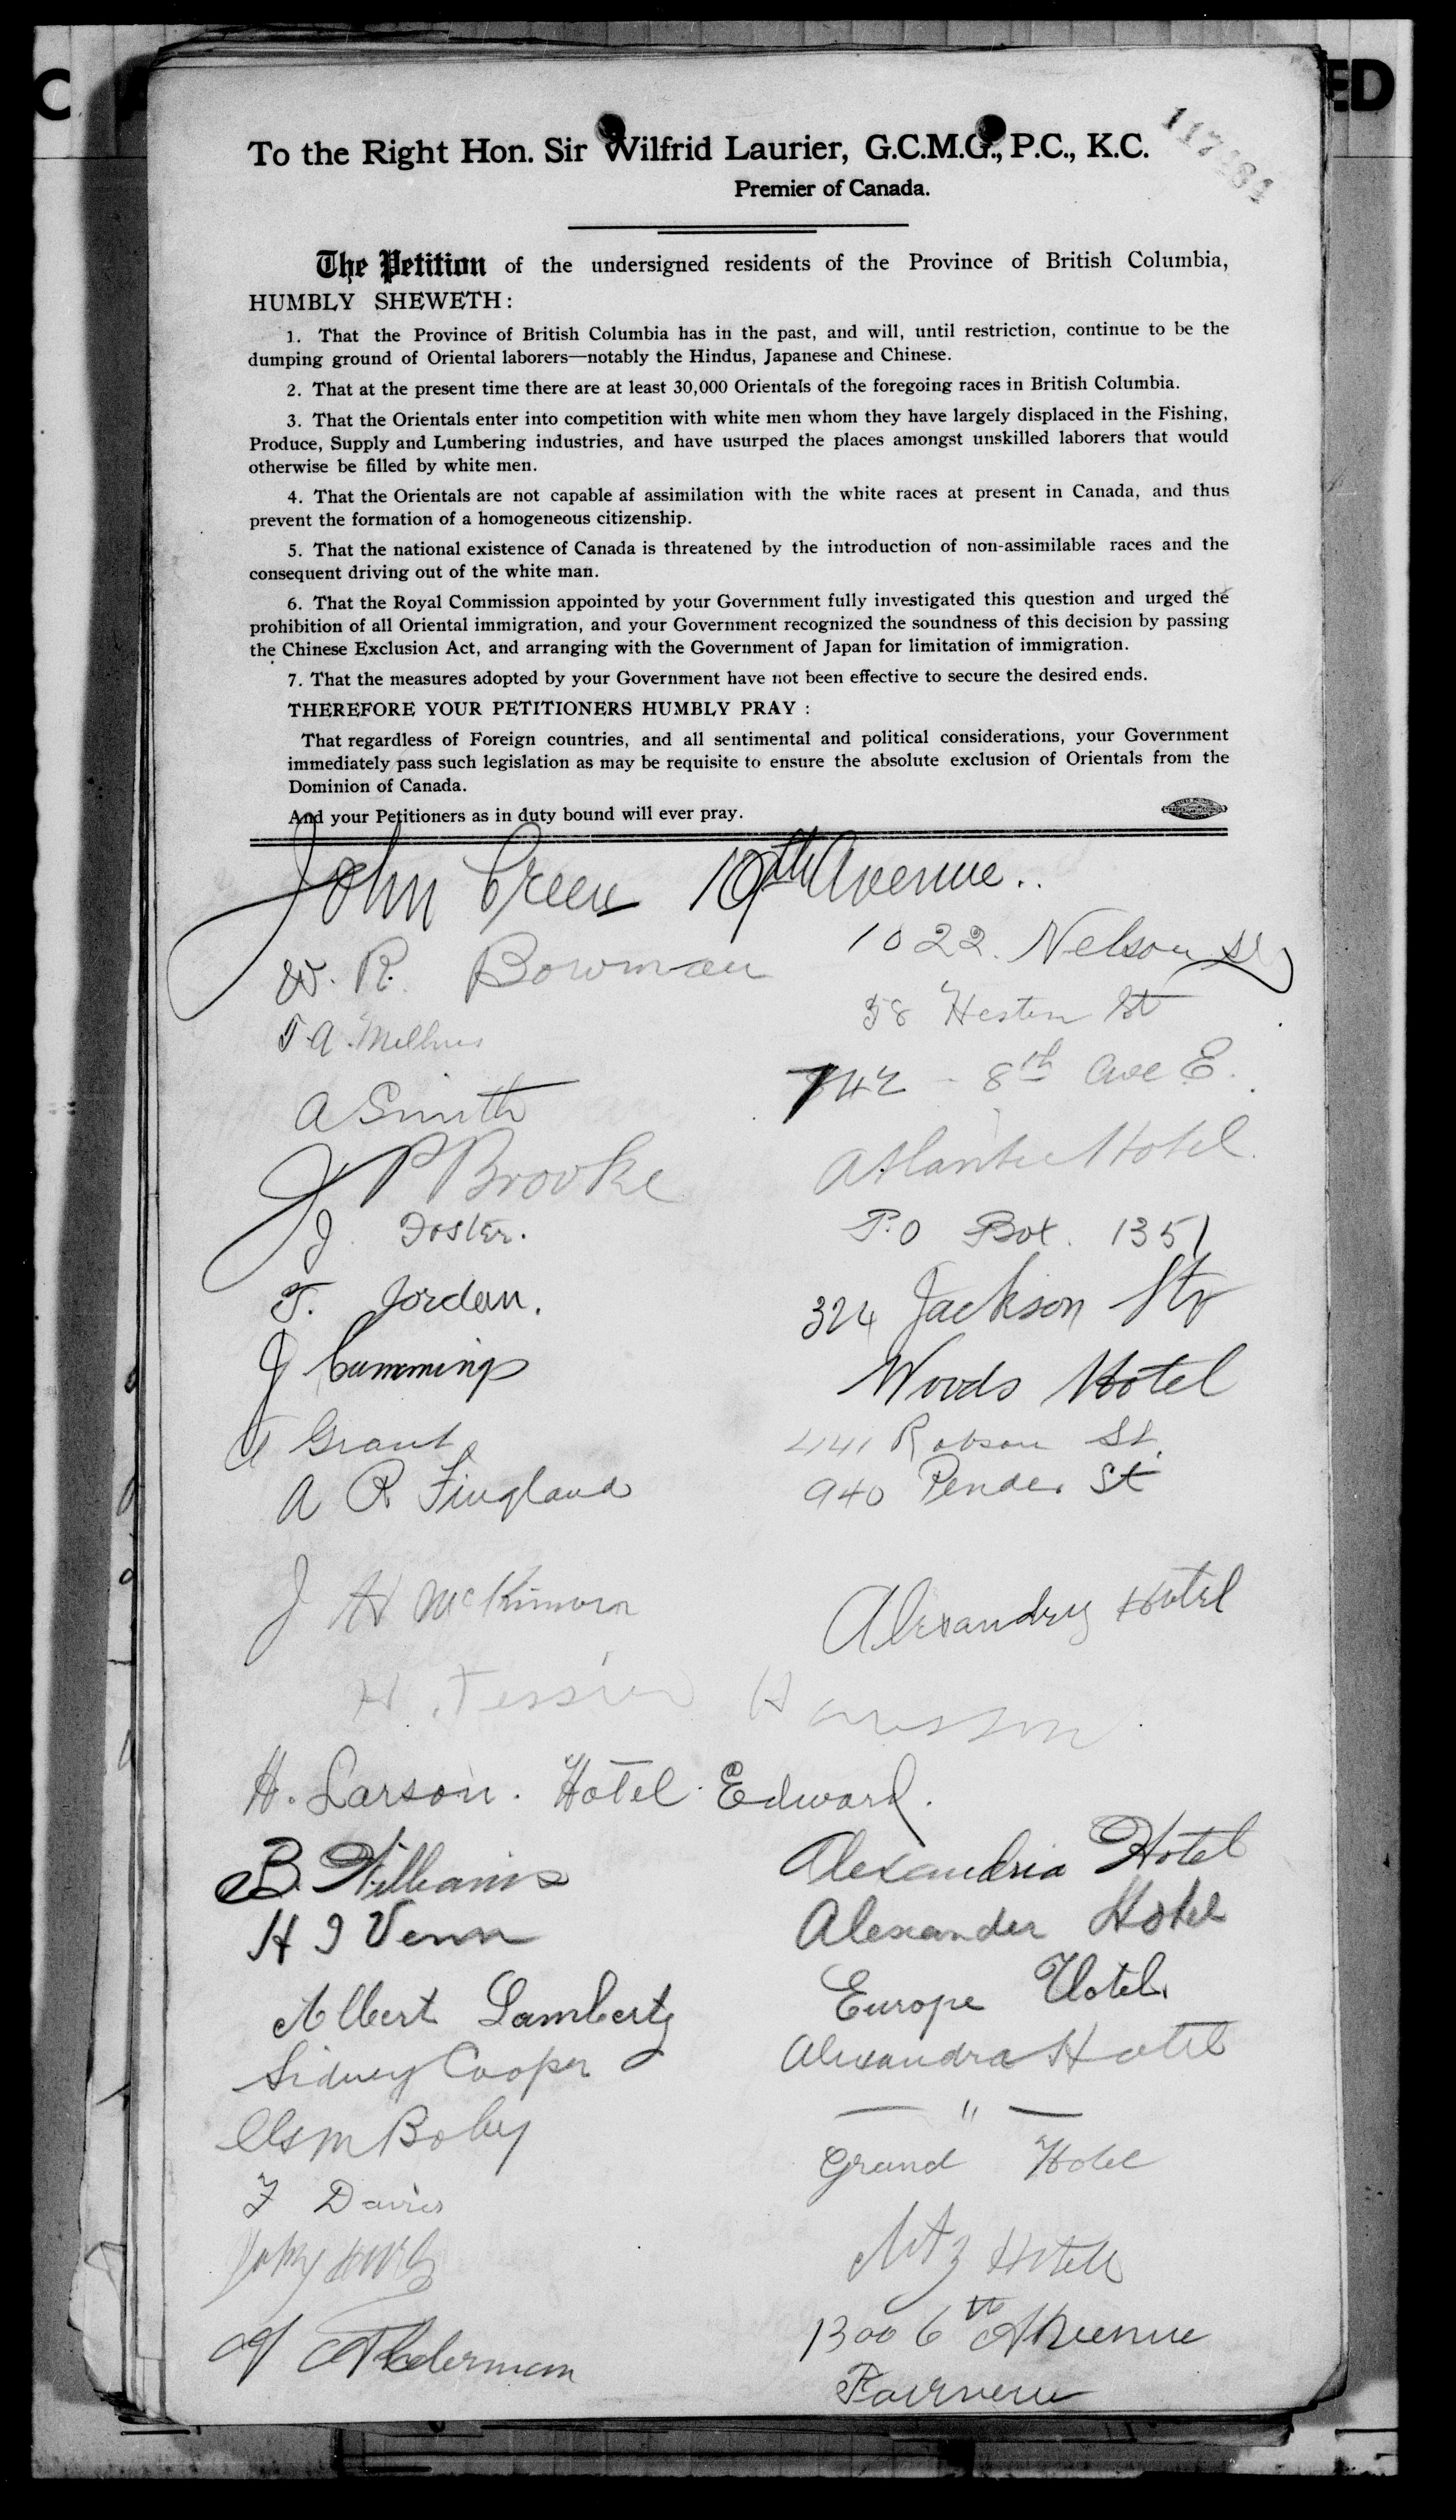 C
ED
To the Right Hon. Sir Wilfrid Laurier, G.C.M.G., P.C., K.C.
Premier of Canada.
The Petition of the undersigned residents of the Province of British Columbia,
HUMBLY SHEWETH:
1. That the Province of British Columbia has in the past, and will, until restriction, continue to be the
dumping ground of Oriental laborers—notably the Hindus, Japanese and Chinese.
2. That at the present time there are at least 30,000 Orientals of the foregoing races in British Columbia.
3. That the Orientals enter into competition with white men whom they have largely displaced in the Fishing,
Produce, Supply and Lumbering industries, and have usurped the places amongst unskilled laborers that would
otherwise be filled by white men.
4. That the Orientals are not capable af assimilation with the white races at present in Canada, and thus
prevent the formation of a homogeneous citizenship.
5. That the national existence of Canada is threatened by the introduction of non-assimilable races and the
consequent driving out of the white man.
6. That the Royal Commission appointed by your Government fully investigated this question and urged the
prohibition of all Oriental immigration, and your Government recognized the soundness of this decision by passing
the Chinese Exclusion Act, and arranging with the Government of Japan for limitation of immigration.
7. That the measures adopted by your Government have not been effective to secure the desired ends.
THEREFORE YOUR PETITIONERS HUMBLY PRAY :
That regardless of Foreign countries, and all sentimental and political considerations, your Government
immediately pass such legislation as may be requisite to ensure the absolute exclusion of Orientals from the
Dominion of Canada.
And your Petitioners as in duty bound will ever pray.
John Green 10th Avenue..
W. R. Bowman 1022. Nelson St
T A 58 St
A Smith 742 - 8th Ave E.
J P Brooke Atlantic Hotel.
J Foster. P.O Box. 1351
T. Jordan. 324 Jackson Str
J Cummings Woods Hotel
A Grant 441 Robson St.
A R Fingland 940 Pender St
J H McKinnon Alexandry Hotel
H. Tessier
H. Larson. Hotel Edward.
B. Williams Alexandria Hotel
H J Venn Alexander Hotel
Albert Lamberty Europe Hotel.
Sidney Cooper Alexandra Hotel
Boley — " —
F Davies Grand Hotel
Hotel
Alderman 1300 6th Avenue
Fairview